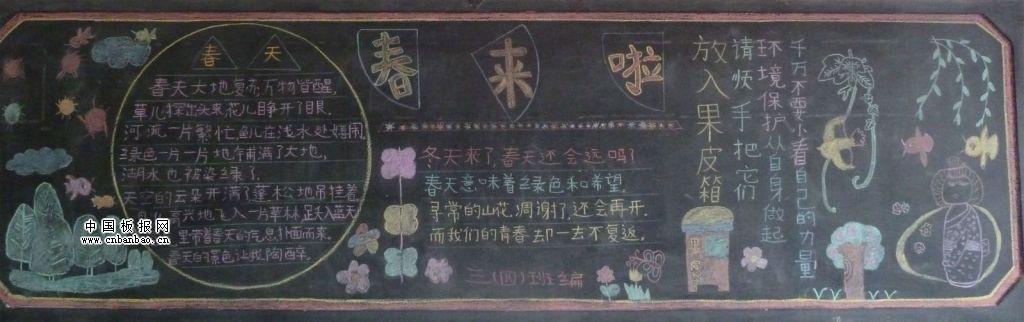 春 天
春天大地复苏万物皆醒,
草儿探出头来花儿睁开了眼.
河流一片繁忙鱼儿在浅水处嬉闹
绿色一片一片地铺满了大地,
湖水也被染绿了.
天空的云朵开满了蓬松地吊挂着
兴地飞入一片草林
里带着春天的气息扑面而来.
春天的绿色让我陶醉.
中国板报网
www.cnbanbao.cn
春来啦
冬天来了,春天还会远吗?
春天意味着绿色和希望.
寻常的山花,凋谢了,还会再开.
而我们的青春却一去不复返.
三(四)班编
千万不要小看自己的力量
环境保护从自身做起
请师手把它们
放入果皮箱